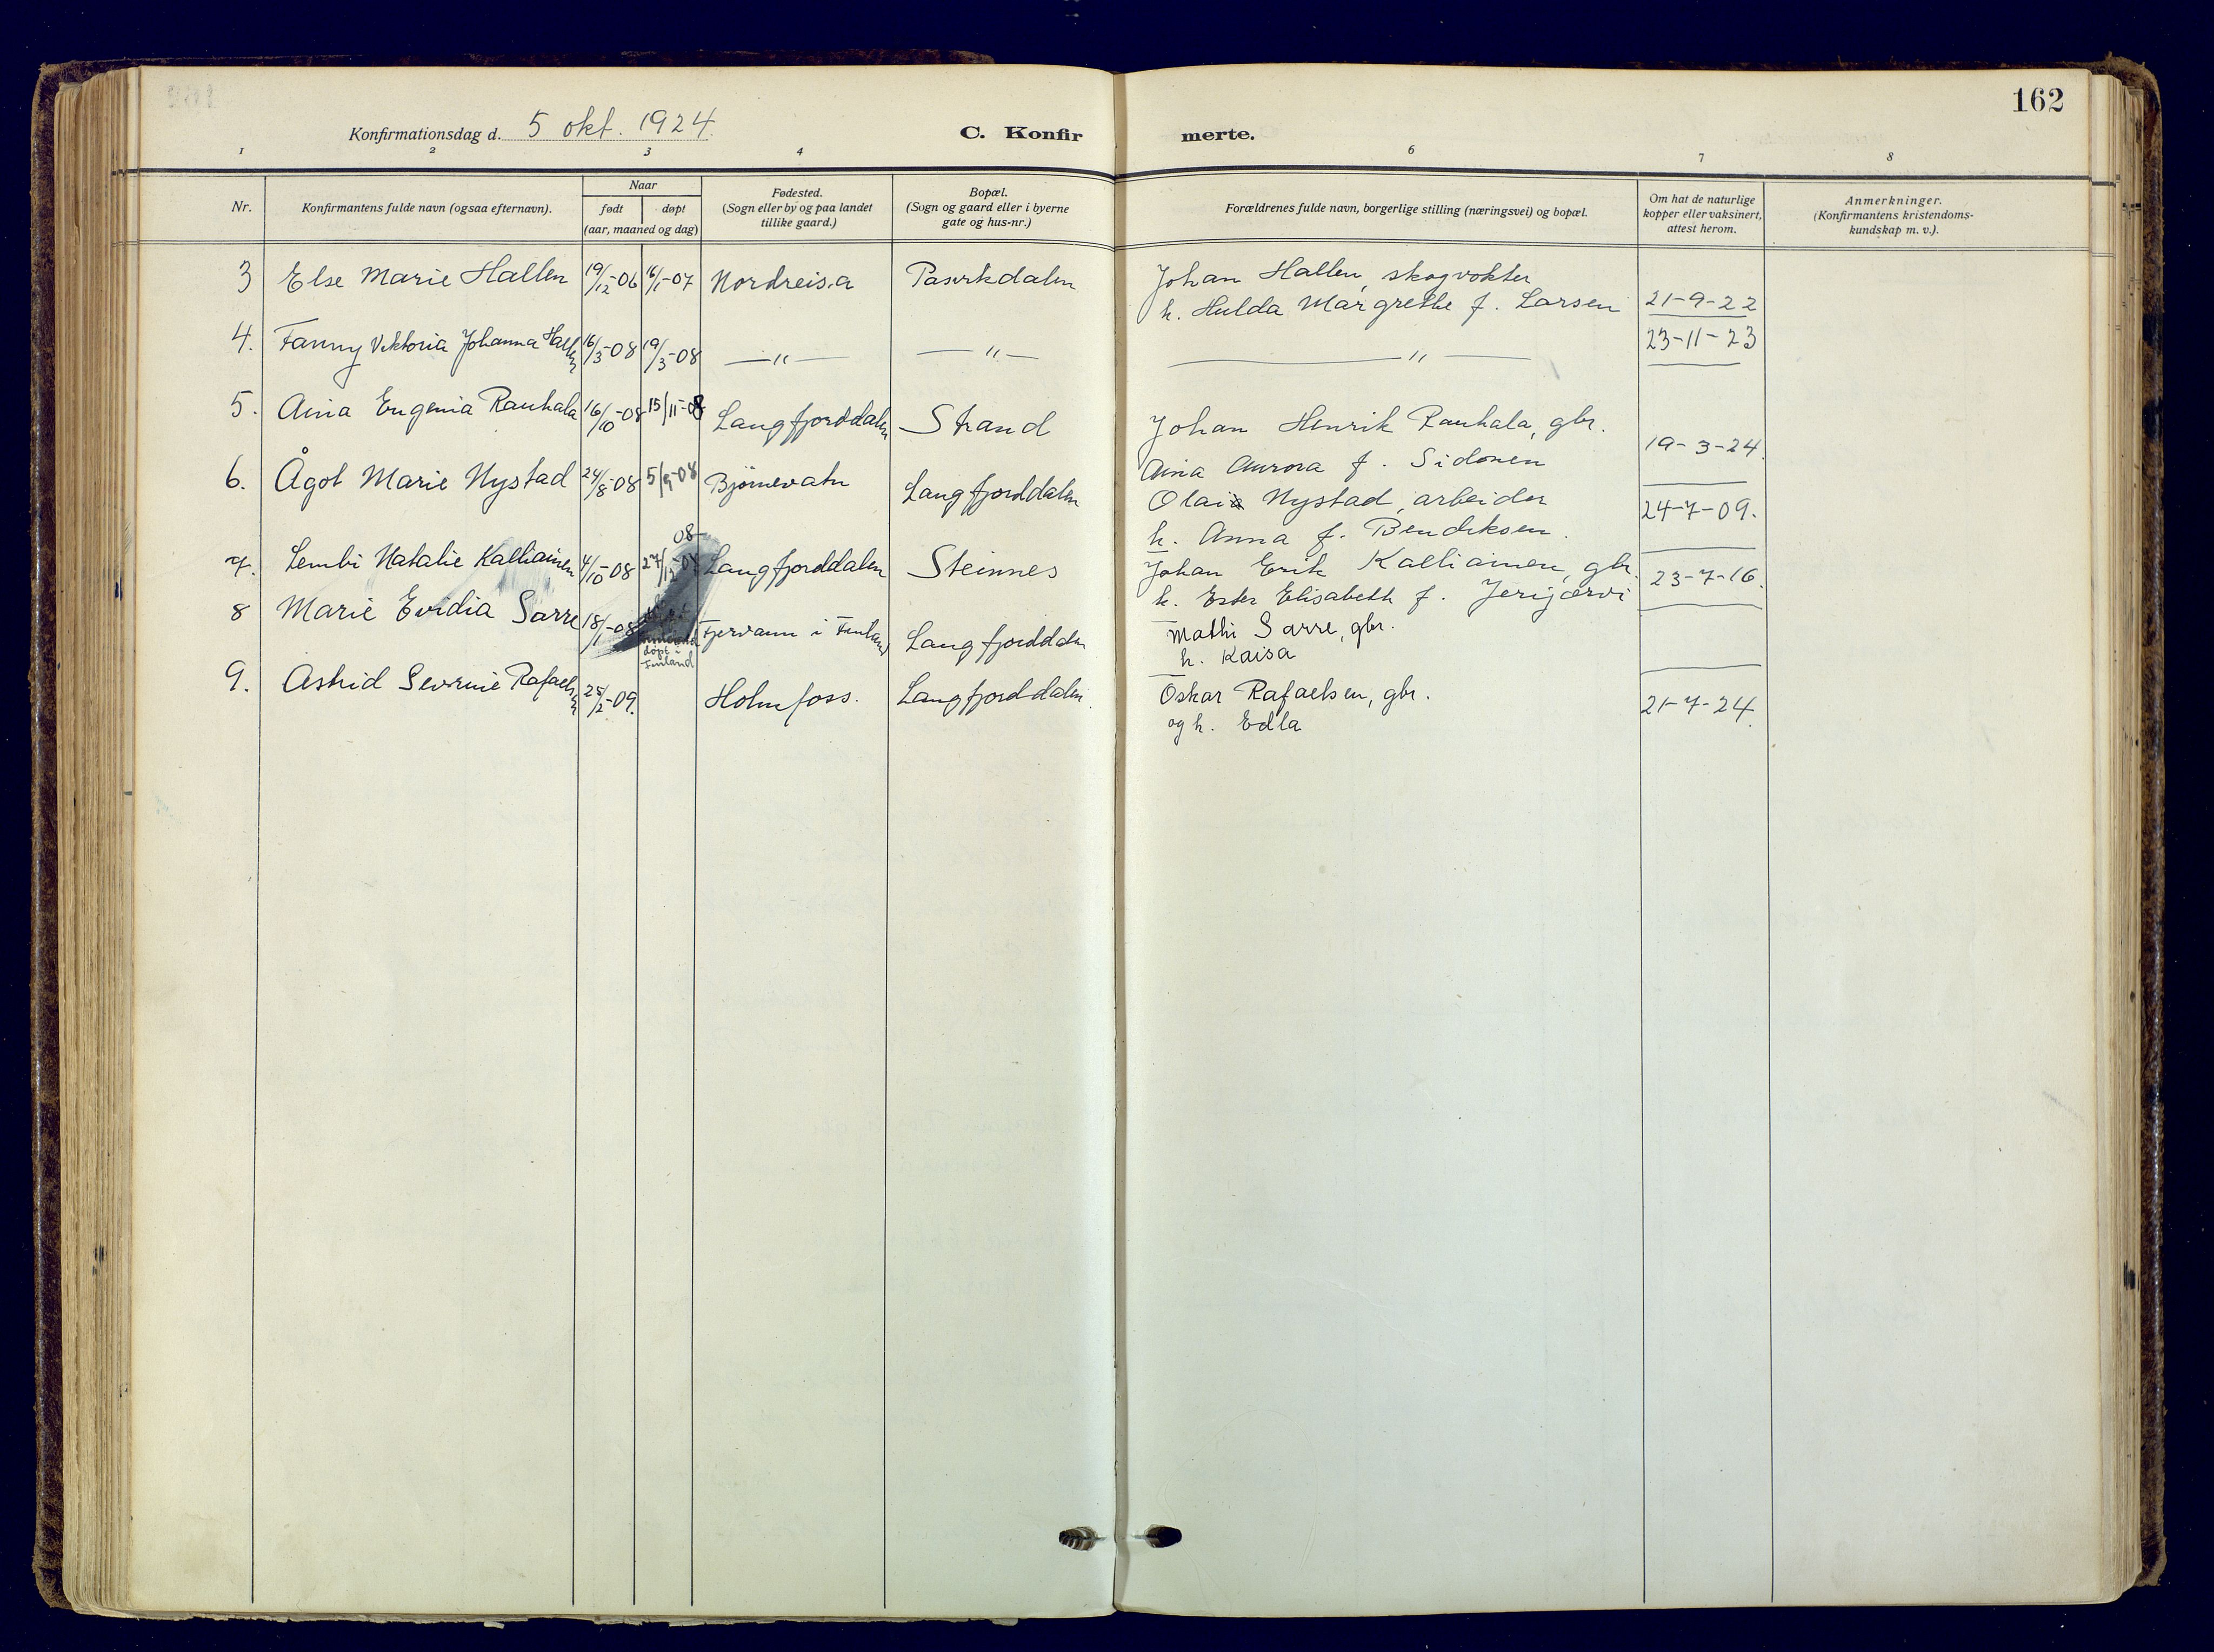 162
Konfirmationsdag d. 5 okt. 1924.
C. Konfir merte.
1 2 3 4 6 7 8
Nr.
Konfirmantens fulde navn (ogsaa efternavn).
Naar
født døpt
(aar, maaned og dag)
Fødested.
(Sogn eller by og paa landet
tillike gaard.)
Bopæl.
(Sogn og gaard eller i byerne
gate og hus-nr.)
Forældrenes fulde navn, borgerlige stilling (næringsvei) og bopæl.
Om hat de naturlige
kopper eller vaksinert,
attest herom.
Anmerkninger.
(Konfirmantens kristendoms-
kundskap m. v.).
3 Else Marie Hallen 19/12-06 16/1-07 Nordreisa Pasvikdalen Johan Hallen, skogvokter
h. Hulda Margrethe f. Larsen 21-9-22
4. Fanny Viktoria Johanna Hallen 16/3-08 19/3-08 —"— —"— —"— 23-11-23
5. Aina Eugenia Rauhala 16/10-08 15/11-08 Langfjorddalen Strand Johan Henrik Rauhala, gbr.
Aina Aurora f. Sidonen 19-3-24.
6. Ågot Marie Nystad 24/8-08 5/9-08 Bjørnevatn Langfjorddalen Olai Nystad, arbeider
h. Anna f. Bendiksen. 24-7-09.
7. Lembi Natalie Kalliainen 4/10-08 27/12-08 Langfjorddalen Steinnes Johan Erik Kalliainen, gbr.
h. Ester Elisabeth f. Jerijærvi 23-7-16.
8 Marie Evidia Sarre 18/1-08 døpt i
Finland i Finland Langfjorddalen Mathi Sarre, gbr.
h. Kaisa
9. Astrid Sevrine Rafaelsen 25/2-09. Holmfoss. Langfjorddalen. Oskar Rafaelsen, gbr.
og h. Edla 21-7-24.